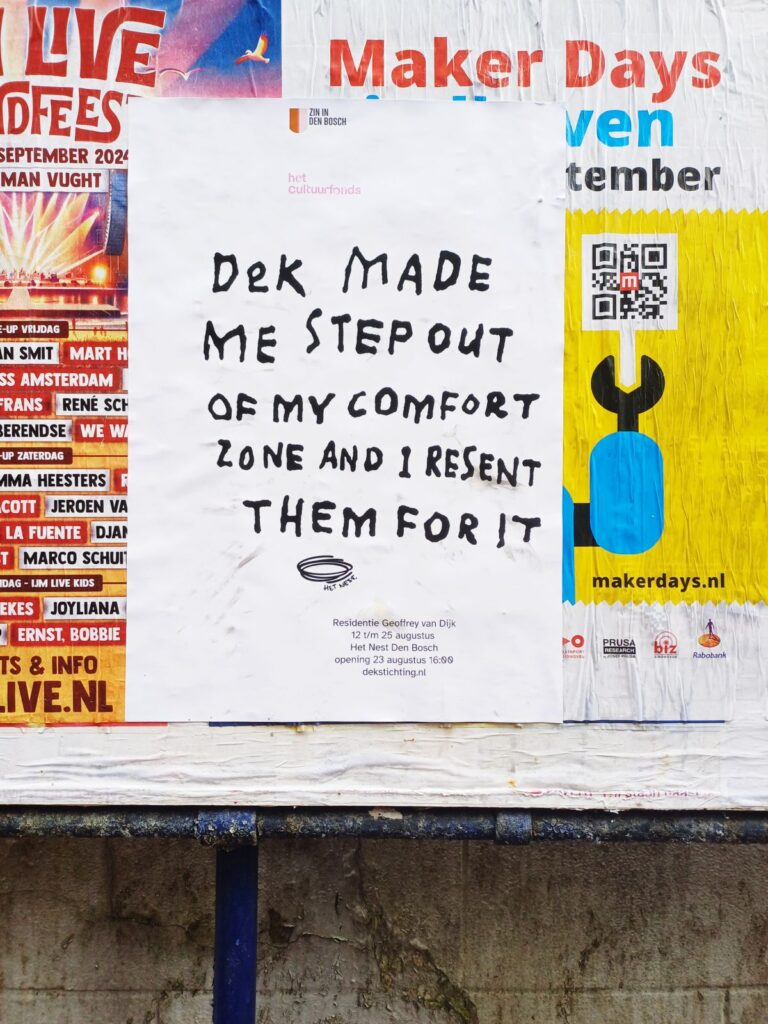 LIVE
DFEES
SEPTEMBER 2024
MAN VUGHT
-UP VRIJDAG
AN SMIT MART H
SS AMSTERDAM
FRANS RENÉ SCH
BERENDSE WE WA
-UP ZATERDAG
MMA HEESTERS
COTT JEROEN VA
LA FUENTE DJAN
MARCO SCHUIT
DAG - IJM LIVE KIDS
EKES JOYLIANA
ERNST, BOBBIE
TS & INFO
LIVE.NL
ZIN IN
DEN BOSCH
het
cultuurfonds
DeK MADE
ME STEP OUT
OF MY COMFORT
ZONE AND I RESENT
THEM FOR IT
HET NEST.
Residentie Geoffrey van Dijk
12 t/m 25 augustus
Het Nest Den Bosch
opening 23 augustus 16:00
dekstichting.nl
Maker Days
ven
tember
m
makerdays.nl
PRUSA
RESEARCH
biz
Rabobank